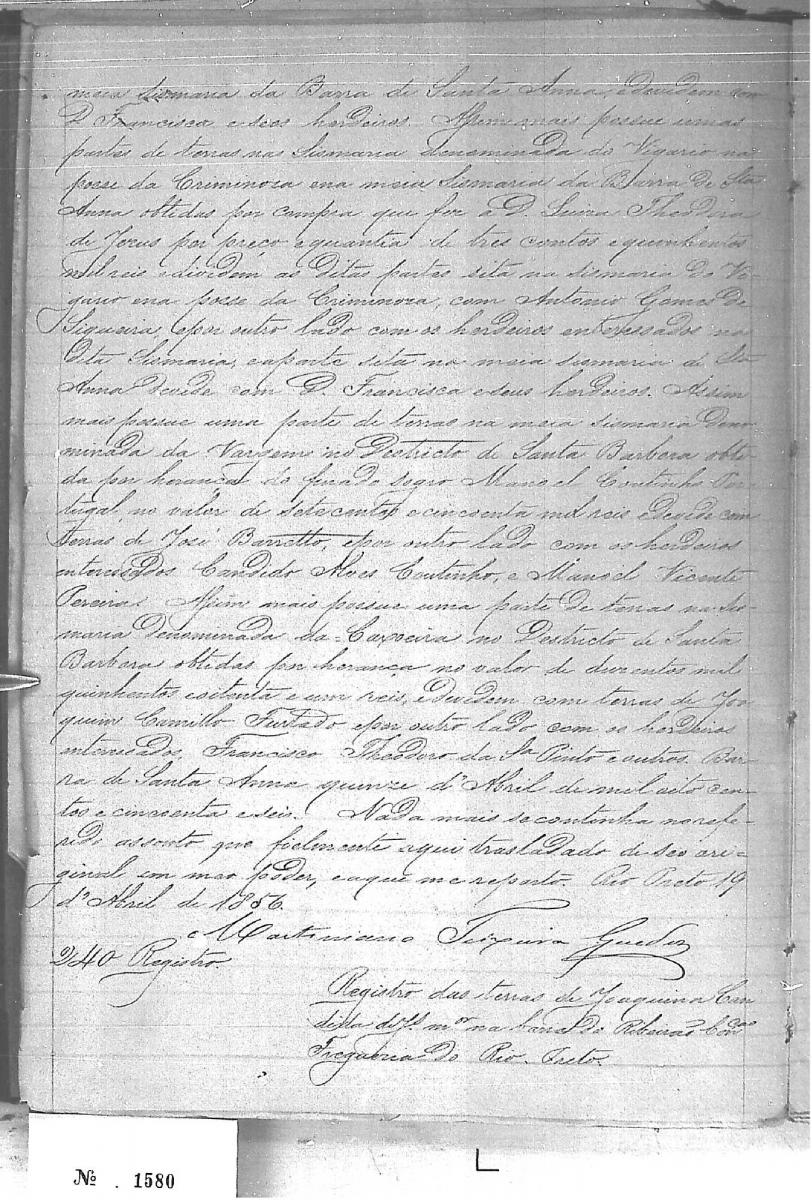 meia sismaria da Barra de Santa Anna, e devidem com
D. Francisca e seos herdeiros. Assim mais possue umas
partes de terras nas Sismaria denominada do Vigario na
posse da Criminoza e na meia Sismaria da Barra de Sta
Anna obtidas por compra que fez a D. Luiza Theodora
de Jezus por preço e quantia de tres contos e quinhentos
mil reis e dividem as ditas partes sita na sismaria do Vi-
gario e na posse da Criminoza, com Antonio Gomes de
Siqueira, e por outro lado com os herdeiros enteressados na
dita Sismaria, e a parte sita na meia sismaria de Sta
Anna devide com D. Francisca e seus herdeiros. Assim
mais possue uma parte de terras na meia sismaria deno
minada da Vargem no Destricto de Santa Barbera obte
da por herança do finado sogro Manoel Coutinho Por
tugal, no valor de sete centos e cincoenta mil reis e devide com
terras de José Barretto, e por outro lado com os herdeiros
interessados Candido Alves Coutinho, e Manoel Vicente
Pereira. Assim mais possue uma parte de terras na Sis-
maria denominada da Caxoeira no Destricto de Santa
Barbera obtidas por herança no valor de duzentos mil
quinhentos e oitenta e um reis, e devidem com terras de Joa
quim Camillo Furtado e por outro lado com os herdeiros
interessados, Francisco Theodoro da Sa Pinto e outros. Bar-
ra de Santa Anna quinze d'Abril de mil oito cen-
tos e cincoenta e seis. Nada mais se continha no refe-
rido assento que fielmente aqui trasladado de seo ori-
ginal em meo poder, e a que me reporto. Rio Preto 19
d'Abril de 1856.
Martiniano Teixeira Guedes
240 Registro.
Registro das terras de Joaquina Can
dida na barra do
Freguezia do Rio Preto.
Nº . 1580